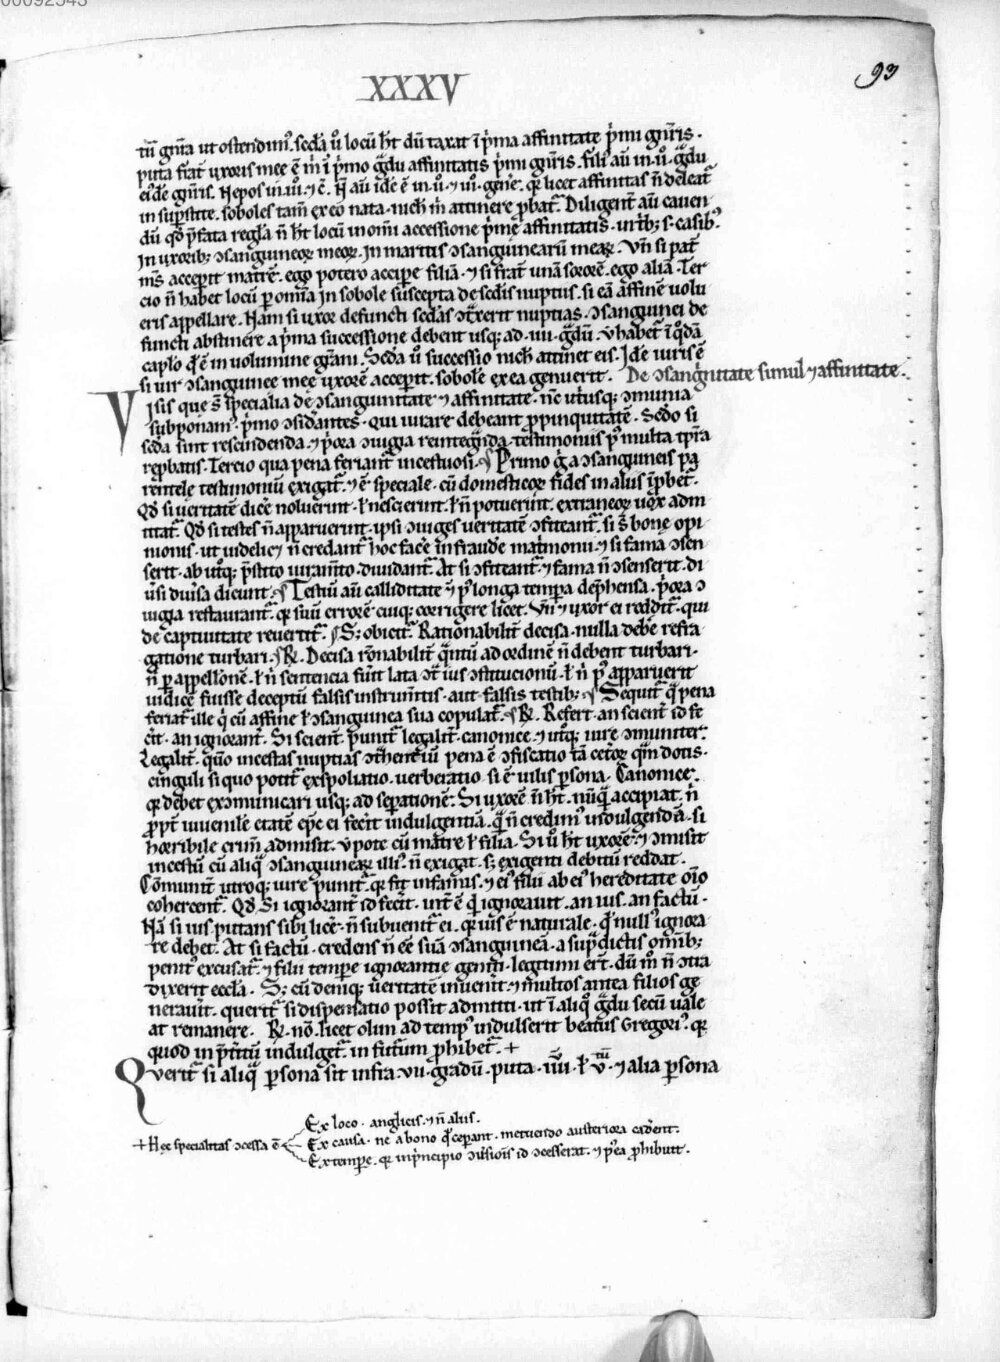 00092543
XXXV
93
tm̄ gn̄a ut ostendim᷒. scd̄a ū locū h̄t dū taxat ī p̄ma affinitate p̄mi gn̄is.
puta frat᷒ uxoris mee ē m̄ ī p̄mo g̃du affinitatis p̄mi gn̄is. fili᷒ aū in .ii. g̃du
eiꝰdē gn̄is. Nepos in .iii. ⁊ c̄. N̄ aū idē ē in .ii. ⁊ .iii. gen̄e. qꝛ licet affinitas n̄ deleat᷒
in sup̄stite. soboles tam̄ ex eo nata nich̄ m̄ attinere ꝓbat᷒. Diligent᷒ aū caven
dū qđ p̄fata regl̄a n̄ h̄t locū in om̄i accessione p̄me affinitatis. utrīꝫ s. casibꝰ.
In uxoribꝫ ↄsanguineoꝝ meoꝝ. In maritis ↄsanguinearū meaꝝ. Vn̄ si pat᷒
m̄s accep̄it matrē. ego potero accip̄e filiā. ⁊ si frat᷒ unā sororē. ego aliā. Ter
cio n̄ habet locū ꝑ om̄ia in sobole suscepta de scd̄is nuptiis. si eā affinē volu
eris appellare. Nam si uxor defuncti scd̄as ↄtͣxerit nuptias. ↄsanguinei de
functi abstinere a p̄ma successione debent usqꝫ ad .iiii. g̃dū. ut habet᷒ ī qͦdā
caplo qđ ē in volumine gr̄ani. Scd̄a ū successio nich̄ attinet eis. Idē iuris ē
si vir ↄsanguinee mee uxorē accep̄it. sobolē ex ea genuerit. De ↄsang̃nitate simul ⁊ affinitate.
Visis que s̄t specialia de ↄsanguinitate ⁊ affinitate. nc̄ utriusqꝫ ↄmunia
subponam᷒. p̄mo ↄsid̄antes. qui iurare debeant ꝓpinquitatē. Scd̄o si
scd̄a sint rescindenda. ⁊ p̄ora ↄiugia reintegrāda. testimoniis pꝰ multa tp̄ra
rep̄batis. Tercio qua pena feriant᷒ incestuosi. ¶ Primo g̃ a ↄsanguineis pa
rentele testimoniū exigat᷒. ⁊ ē speciale. cū domesticoꝝ fides in aliis īꝓbet᷒.
Qđ si veritatē dic̄e noluerint. ł nescierint. ł n̄ potuerint. extraneoꝝ uox adm
ittat᷒. Qđ si testes n̄ apparuerint. ipsi ↄiuges veritatē ↄfiteant᷒. si s̄t bone opi
nionis. ut uidelicꝫ n̄ credant᷒ hoc fac̄e in fraudē mat̄monii. ⁊ si fama ↄsen
serit. ab utͦqꝫ p̄stito iuram̄to. diuidant᷒. At si ↄfiteant᷒ ⁊ fama n̄ ↄsenserit. di
u̓si diu̓sa dicunt. ¶ Testiū aū calliditate ū pꝰ longa tempa dep̄hensa. p̄ora ↄ
iugia restaurant᷒. qꝛ suū errorē cuiqꝫ corrigere licet. Vn̄ ⁊ uxor ei reddit᷒. qui
de captiuitate reuertit᷒. ¶ Sꝫ obicit᷒. Rationabilit᷒ decisa. nulla debēt refra
gatione turbari. ¶ ℞. Decisa rōnabilit᷒ q̃ntū ad ordinē n̄ debent turbari.
n̄ ꝑ appellōnē. ł n̄ sentencia fūit lata ↄtͣ ius ↄstitucionū. ł n̄ pꝰ apparuerit
iudicē fuisse deceptū falsis instrum̄tis. aut falsis testibꝫ. ¶ Sequit᷒ q̃ pena
feriat᷒ ille q̇ cū affine ł ↄsanguinea sua copulat᷒. ¶ ℞. Refert. an scient᷒ id fe
cit᷒. an ignorant᷒. Si scient᷒. punit᷒ legalit᷒. canonice. ⁊ utͦqꝫ iure ↄmunit᷒.
Legalit᷒. qm̄o incestas nuptias ↄtͣhentiū pena ē ↄfiscatio tā cetoꝝ q̃m dotis.
cinguli si quo potit᷒ exspoliatio. uerberatio. si ē vilis ꝑsona. Canonice.
qꝛ debet exↄmunicari usqꝫ ad sep̄ationē. Si uxorē n̄ h̄t. nūq̃ accipiat. n̄
ꝓpt᷒ iuuenilē etatē ep̄c ei fecit᷒ indulgentiā. q̃ n̄ credim᷒ indulgendā. si
horribile crim̄ admisit. Vpote cū matre ł filia. Si ū h̄t uxorē. ⁊ ↄmisit
incestū cū aliq̃ ↄsanguineaꝝ illi᷒. n̄ exigat. sꝫ exigenti debitū reddat.
Cōmunit᷒ utroqꝫ iure punit᷒. qꝛ fit infamis. ⁊ ei᷒ filii ab ei᷒ hereditate om̄io
cohercent᷒. Qđ Si ignorant᷒ id fecit. int᷒ē q̇d ignorauit. an ius. an factū.
Nā si ius. putans sibi lic̄e. n̄ subuenit᷒ ei. qꝛ ius ē naturale. qđ null᷒ ignora
re debet. At si factū. credens n̄ eē suā ↄsanguineā. a sup̄dictis om̄ibꝫ
penit᷒ excusat᷒. ⁊ filii temp̄e ignorantie geniti. legitimi er̄t. dū m̊ n̄ ↄtͣ
dixerit eccl̄a. Sꝫ cū deniqꝫ ueritatē inuenit᷒. ⁊ multos antea filios ge
nerauit᷒. querit᷒ si dispensatio possit admitti. ut ī aliq̊ g̃du secū vale
at remanere. ℞. nō. licet olim ad temp᷒ indulserit beatus Gregori᷒. qꝛ
quod in p̄t̄itū indulget᷒. in futurum ꝓhibet᷒. +
Querit᷒ si aliq̃ ꝑsona sit infra .vii. gradū. puta .iiii. ł .v. ⁊ alia ꝑsona
Ex loco. anglicis. ⁊ n̄ aliis.
+ Hec specialitas ↄcessa ē Ex causa. ne a bono qđ cep̄ant. metuendo austeriora cad̄ent.
Ex temp̄e. qꝛ in p̄ncipio ↄu̓siōis id ↄcesserat. ⁊ p̄ea ꝓhibuit.